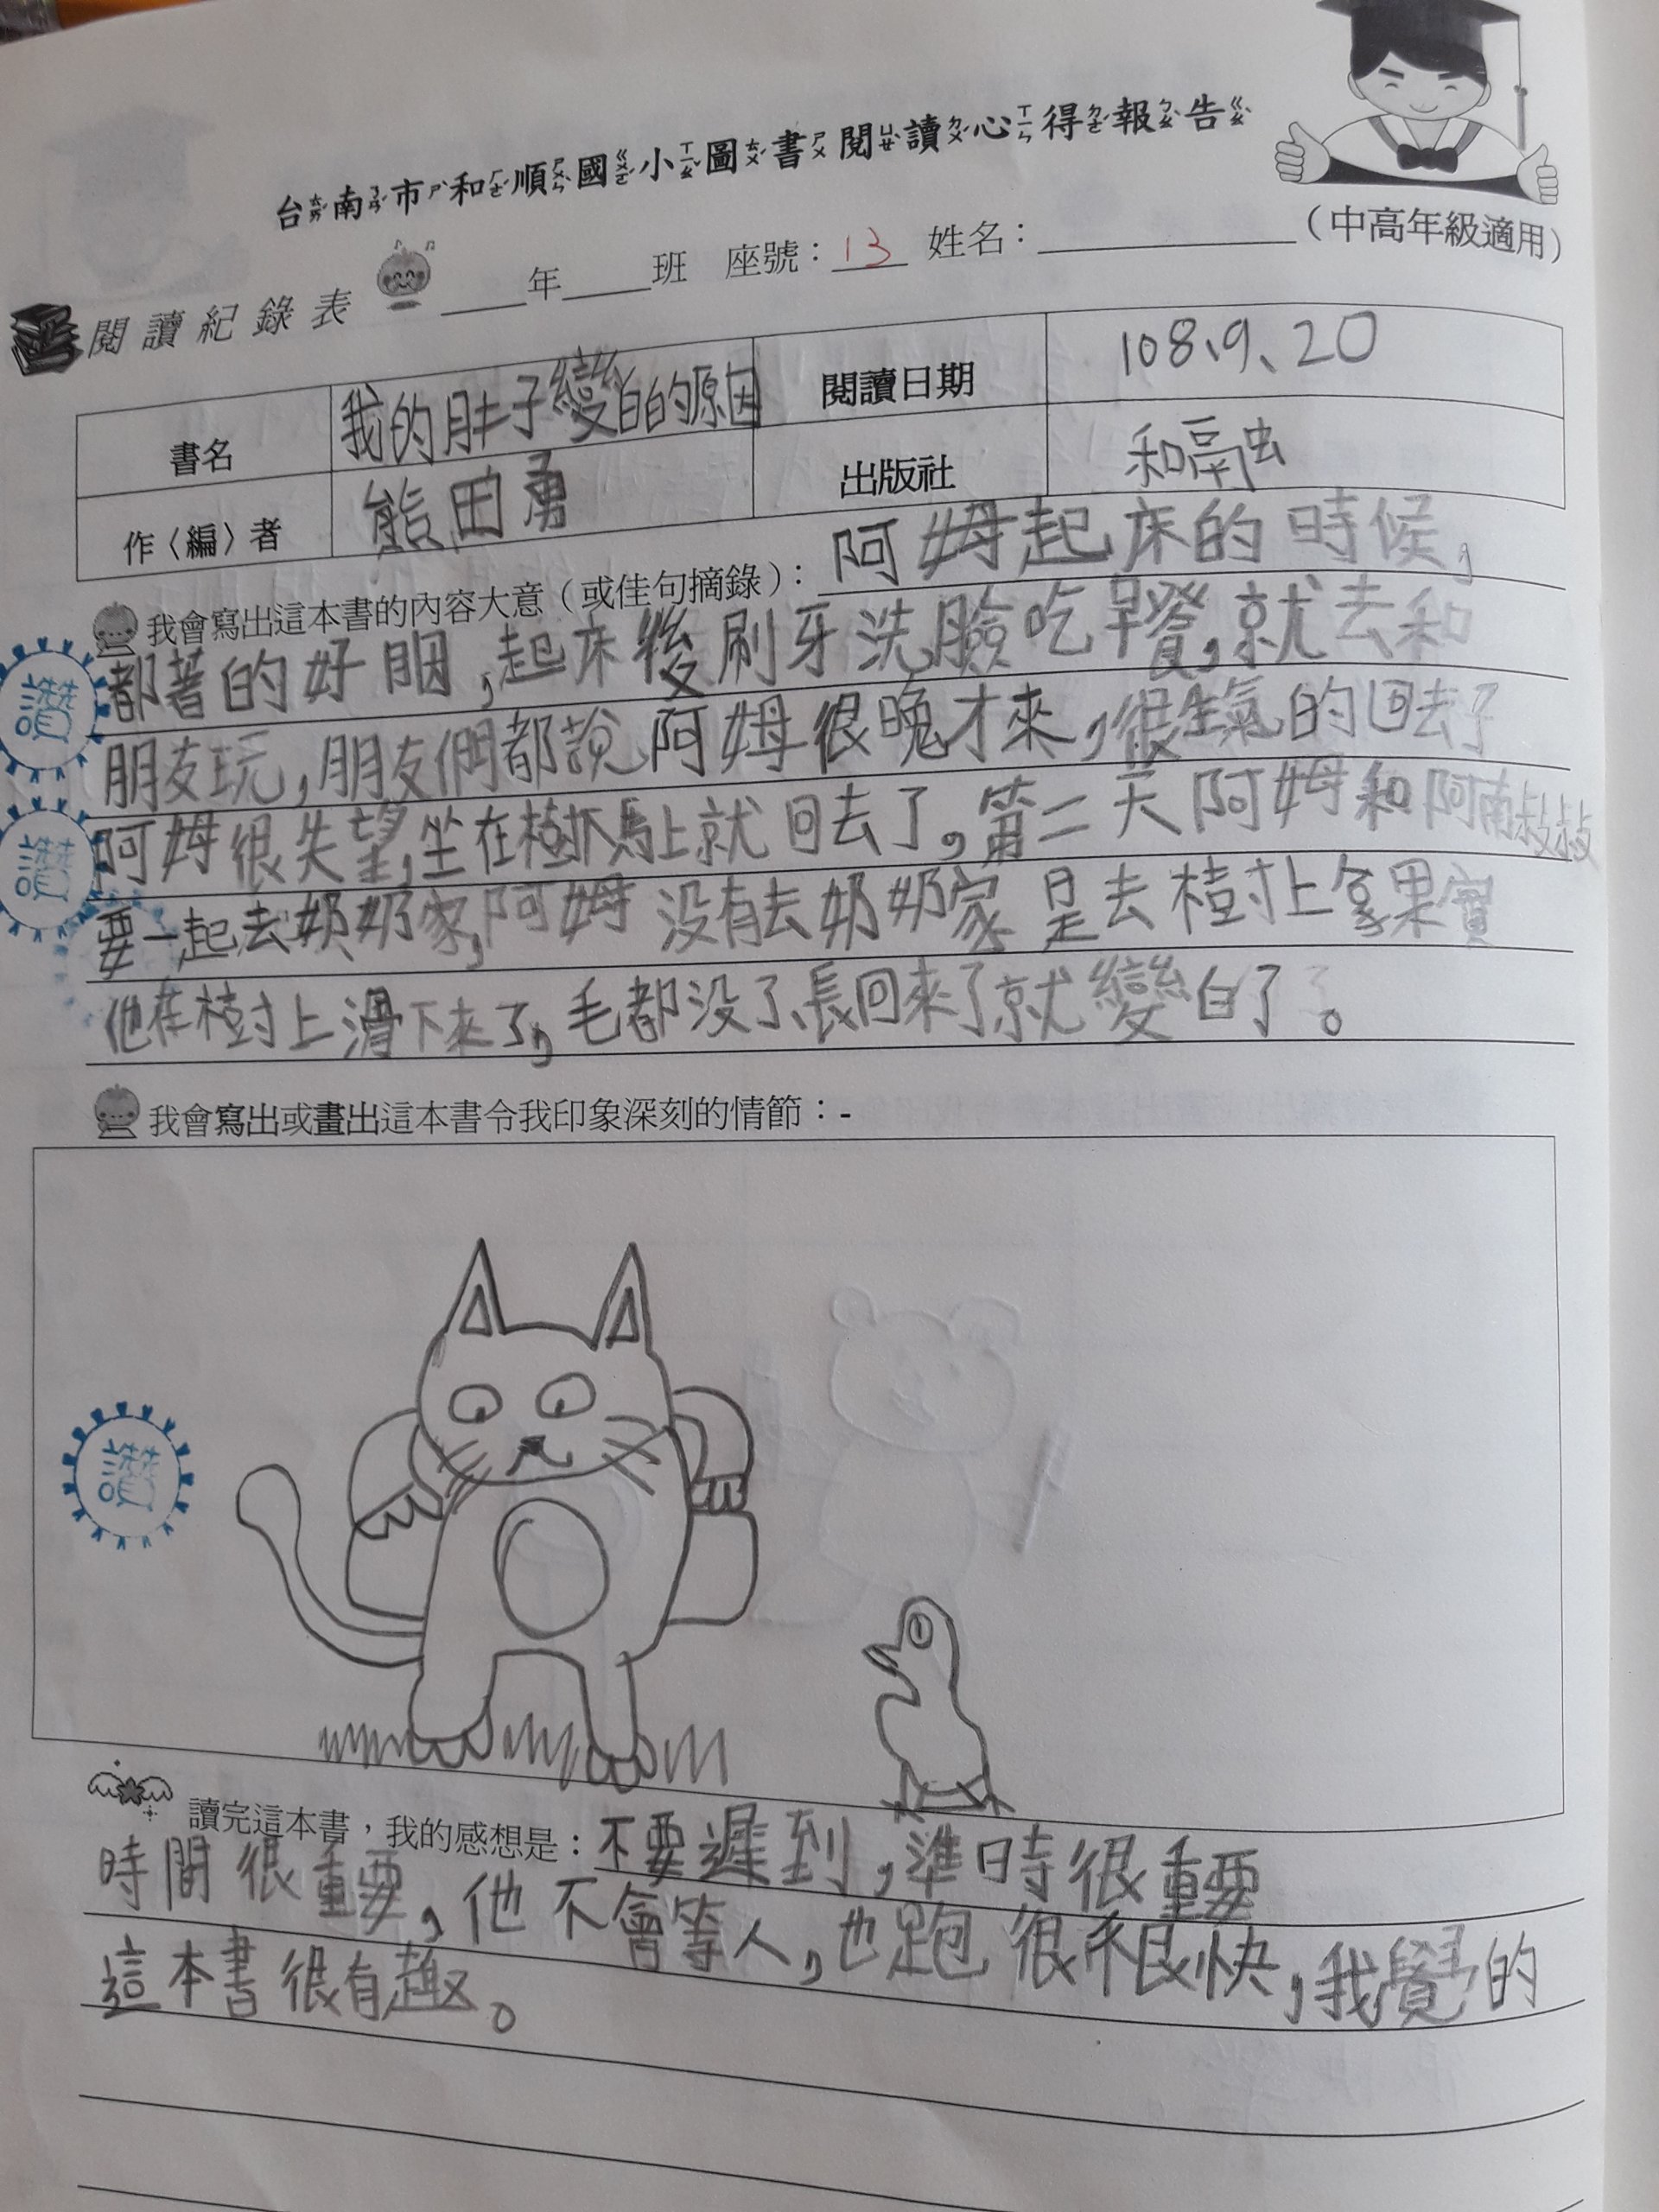 台南市和順國小圖書閱讀心得報告
閱讀紀錄表 ____年____班 座號：13 姓名：__________（中高年級適用）
書名 我的肚子變白的原因 閱讀日期 108、9、20
作〈編〉者 熊田勇 出版社 和融
我會寫出這本書的內容大意（或佳句摘錄）： 阿姆起床的時候，
都著的好胭，起床後刷牙洗臉吃早餐，就去和
朋友玩，朋友們都說阿姆很晚才來，很生氣的回去了
阿姆很失望，坐在樹馬上就回去了，第二天阿姆和阿南叔叔
要一起去奶奶家，阿姆没有去奶奶家是去樹上拿果實
他在樹上滑下來了，毛都没了、長回來了就變白了。
讚
讚
我會寫出或畫出這本書令我印象深刻的情節：-
讚
讀完這本書，我的感想是：不要遲到，準時很重要
時間很重要，他不會等人，也跑很很快，我覺的
這本書很有趣。